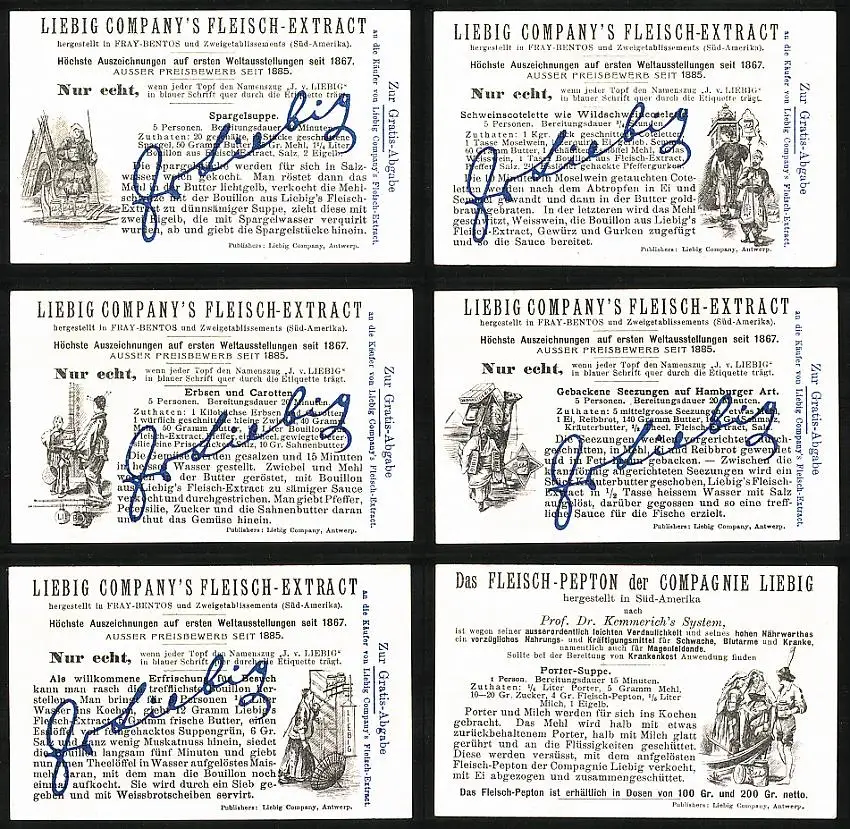 LIEBIG COMPANY'S FLEISCH-EXTRACT
hergestellt in FRAY-BENTOS und Zweigetablissements (Süd-Amerika).
Höchste Auszeichnungen auf ersten Weltausstellungen seit 1867.
AUSSER PREISBEWERB SEIT 1885.
Nur echt, wenn jeder Topf den Namenszug „J. v. LIEBIG"
in blauer Schrift quer durch die Etiquette trägt.
Spargelsuppe.
5 Personen. Bereitungsdauer Minuten.
Zuthaten: 20 Stücke geschnittene
Spargel, 50 Gramm Butter, Gr. Mehl, 1½ Liter
Bouillon aus Extract, Salz, 2 Eigelb.
Die Spargel werden für sich in Salz-
wasser gekocht. Man röstet dann das
Mehl in der Butter lichtgelb, verkocht die Mehl-
schwitze mit der Bouillon aus Liebig's Fleisch-
Extract zu dünnsämiger Suppe, zieht diese mit
zwei Eigelb, die mit Spargelwasser verquirlt
wurden, ab und giebt die Spargelstücke hinein.
Publishers: Liebig Company, Antwerp.
Zur Gratis-Abgabe
an die Käufer von Liebig Company's Fleisch-Extract.
LIEBIG COMPANY'S FLEISCH-EXTRACT
hergestellt in FRAY-BENTOS und Zweigetablissements (Süd-Amerika).
Höchste Auszeichnungen auf ersten Weltausstellungen seit 1867.
AUSSER PREISBEWERB SEIT 1885.
Nur echt, wenn jeder Topf den Namenszug „J. v. LIEBIG"
in blauer Schrift quer durch die Etiquette trägt.
Schweinscotelette wie Wildschwein
5 Personen. Bereitungsdauer Stunden.
Zuthaten: 1 Kgr. geschnittene Cotelette,
1 Tasse Moselwein, Ei, gerieb. Semmel,
60 Gramm Butter, 1 Mehl, Glas
Weisswein, 1 Tasse aus Fleisch-Extract,
Pfeffer, Salz, 2 gehackte Pfeffergurken.
Die 10 Minuten in Moselwein getauchten Cote-
lette werden nach dem Abtropfen in Ei und
Semmel gewandt und dann in der Butter gold-
braun gebraten. In der letzteren wird das Mehl
geschwitzt, Weisswein, die Bouillon aus Liebig's
Fleisch-Extract, Gewürz und Gurken zugefügt
und so die Sauce bereitet.
Publishers: Liebig Company, Antwerp.
Zur Gratis-Abgabe
an die Käufer von Liebig Company's Fleisch-Extract.
LIEBIG COMPANY'S FLEISCH-EXTRACT
hergestellt in FRAY-BENTOS und Zweigetablissements (Süd-Amerika).
Höchste Auszeichnungen auf ersten Weltausstellungen seit 1867.
AUSSER PREISBEWERB SEIT 1885.
Nur echt, wenn jeder Topf den Namenszug „J. v. LIEBIG"
in blauer Schrift quer durch die Etiquette trägt.
Erbsen und Carotten.
5 Personen. Bereitungsdauer 20 Minuten.
Zuthaten: 1 Kilo Erbsen Carotten
würflich geschnitten, kleine Zwiebel, 40 Gramm
Mehl, 50 Gramm Butter, Liter Bouillon
Fleisch-Extract, Pfeffer, gewiegte Peter-
silie, eine Prise Zucker, Salz, 10 Gr. Sahnenbutter.
Gemüse werden gesalzen und 15 Minuten
in heisses Wasser gestellt. Zwiebel und Mehl
werden in der Butter geröstet, mit Bouillon
aus Liebig's Fleisch-Extract zu sämiger Sauce
verkocht und durchgestrichen. Man giebt Pfeffer,
Petersilie, Zucker und die Sahnenbutter daran
und thut das Gemüse hinein.
Publishers: Liebig Company, Antwerp.
Zur Gratis-Abgabe
an die Käufer von Liebig Company's Fleisch-Extract.
LIEBIG COMPANY'S FLEISCH-EXTRACT
hergestellt in FRAY-BENTOS und Zweigetablissements (Süd-Amerika).
Höchste Auszeichnungen auf ersten Weltausstellungen seit 1867.
AUSSER PREISBEWERB SEIT 1885.
Nur echt, wenn jeder Topf den Namenszug „J. v. LIEBIG"
in blauer Schrift quer durch die Etiquette trägt.
Gebackene Seezungen auf Hamburger Art.
5 Personen. Bereitungsdauer 20 Minuten.
Zuthaten: 5 mittelgrosse Seezungen, etwas Mehl,
1 Ei, Reibbrot, 140 Gramm Butter, Schmalz,
Kräuterbutter, ½ Theel. Fleisch-Extract, Salz.
Die Seezungen werden vorgerichtet,
geschnitten, in Mehl, Ei und Reibbrot gewendet
und in Fett braun gebacken. – Zwischen die
kranzförmig angerichteten Seezungen wird ein
Stück Kräuterbutter geschoben, Liebig's Fleisch-
Extract in ½ Tasse heissem Wasser mit Salz
aufgelöst, darüber gegossen und so eine treff-
liche Sauce für die Fische erzielt.
Publishers: Liebig Company, Antwerp.
Zur Gratis-Abgabe
an die Käufer von Liebig Company's Fleisch-Extract.
LIEBIG COMPANY'S FLEISCH-EXTRACT
hergestellt in FRAY-BENTOS und Zweigetablissements (Süd-Amerika).
Höchste Auszeichnungen auf ersten Weltausstellungen seit 1867.
AUSSER PREISBEWERB SEIT 1885.
Nur echt, wenn jeder Topf den Namenszug „J. v. LIEBIG"
in blauer Schrift quer durch die Etiquette trägt.
Als willkommene Erfrischung
kann man rasch die trefflichste Bouillon her-
stellen. Man bringt für 5 Personen 1 Liter
Wasser ins Kochen, giebt 12 Gramm Liebig
Fleisch-Extract, Gramm frische Butter, einen
Esslöffel feingehacktes Suppengrün, 6 Gr.
Salz und ganz wenig Muskatnuss hinein, siedet
die Bouillon langsam fünf Minuten und giebt
einen Theelöffel in Wasser aufgelöstes Mais-
mehl daran, mit dem man die Bouillon noch
einmal aufkocht. Sie wird durch ein Sieb ge-
geben und mit Weissbrotscheiben servirt.
LIEBIG
Publishers: Liebig Company, Antwerp.
Zur Gratis-Abgabe
an die Käufer von Liebig Company's Fleisch-Extract.
Das FLEISCH-PEPTON der COMPAGNIE LIEBIG
hergestellt in Süd-Amerika
nach
Prof. Dr. Kemmerich's System,
ist wegen seiner ausserordentlich leichten Verdaulichkeit und seines hohen Nährwerthes
ein vorzügliches Nahrungs- und Kräftigungsmittel für Schwache, Blutarme und Kranke,
namentlich auch für Magenleidende.
Sollte bei der Bereitung von Krankenkost Anwendung finden
Porter-Suppe.
1 Person. Bereitungsdauer 15 Minuten.
Zuthaten: ¼ Liter Porter, 5 Gramm Mehl,
10–20 Gr. Zucker, 4 Gr. Fleisch-Pepton, ⅛ Liter
Milch, 1 Eigelb.
Porter und Milch werden für sich ins Kochen
gebracht. Das Mehl wird halb mit etwas
zurückbehaltenem Porter, halb mit Milch glatt
gerührt und an die Flüssigkeiten geschüttet.
Diese werden versüsst, mit dem aufgelösten
Fleisch-Pepton der Compagnie Liebig verkocht,
mit Ei abgezogen und zusammengeschüttet.
Das Fleisch-Pepton ist erhältlich in Dosen von 100 Gr. und 200 Gr. netto.
Publishers: Liebig Company, Antwerp.